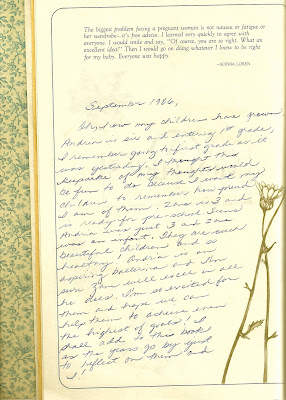 The biggest problem facing a pregnant woman is not nausea or fatigue or
her wardrobe—it's free advice. I learned very quickly to agree with
everyone. I would smile and say, "Of course, you are so right. What an
excellent idea!" Then I would go on, doing whatever I knew to be right
for my baby. Everyone was happy.
—SOPHIA LOREN
September 1986,
Oh, how my children have grown
is six and entering 1st grade,
I remember going to first grade as it
was yesterday. I thought this
keepsake of my thoughts would
be fun to do because I want my
children to remember how proud
I am of them. Zane is 3 and
is ready for pre-school. Seems
was just 3 and Zane
was an infant. They are such
beautiful children and so
healthy! is an
aspiring ballerina and I'm
sure Zane will excel in all
he does. I'm so excited for
them and hope we can
help them to achieve even
the highest of goals! I
shall add to this book
as the years go by just
to reflect on them and
I!